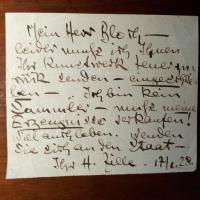 Mein Herr Bloch –
leider muß ich Ihnen
Ihr Kunstwerk
zurück senden – eingeschrie
ben – ich bin kein
Sammler – muß meine
Erzeugnisse verkaufen!
Sie sich an den Staat –
Ihr H. Zille. 17/1.28.